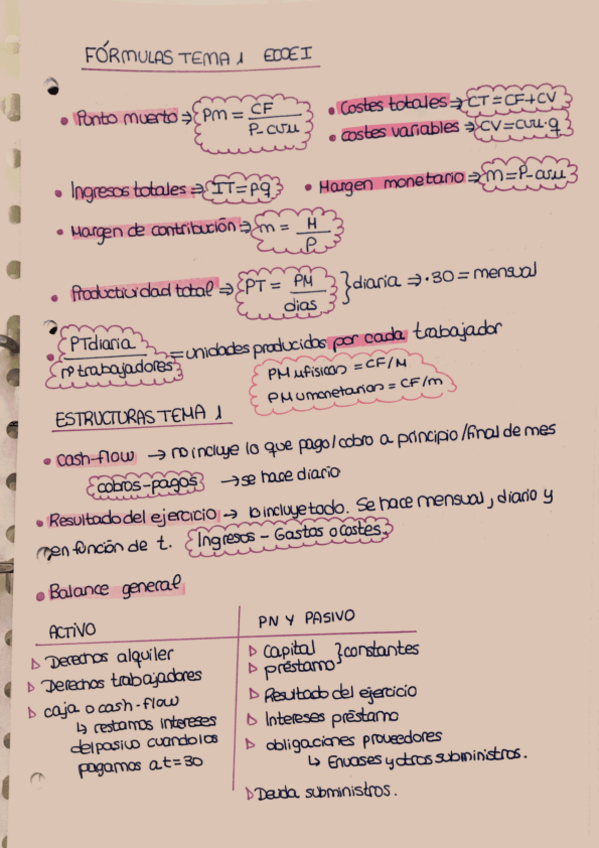 FÓRMULAS TEMA 1 EDOEI
• Punto muerto ⇒ Pm = CF / P-cvu
• Costes totales ⇒ CT = CF+CV
• costes variables ⇒ CV = cvu·q
• Ingresos totales ⇒ IT = pq
• Margen monetario ⇒ m = P-cvu
• Margen de contribución ⇒ m = M / P
• Productividad total ⇒ PT = PM / dias } diaria ⇒ ·30 = mensual
• PTdiaria / nº trabajadores = unidades producidos por cada trabajador
PM ufisicas = CF/M
PM umonetarias = CF/m
ESTRUCTURAS TEMA 1
• cash-flow → no incluye lo que pago/cobro a principio/final de mes
cobros-pagos → se hace diario
• Resultado del ejercicio → lo incluye todo. Se hace mensual, diario y
en función de t. Ingresos - Gastos o costes
• Balance general
ACTIVO
▷ Derechos alquiler
▷ Derechos trabajadores
▷ caja o cash-flow
↳ restamos intereses
del pasivo cuando los
pagamos a t=30
PN Y PASIVO
▷ Capital } constantes
▷ préstamo
▷ Resultado del ejercicio
▷ Intereses préstamo
▷ obligaciones proveedores
↳ Envases y otros subministros.
▷ Deuda subministros.